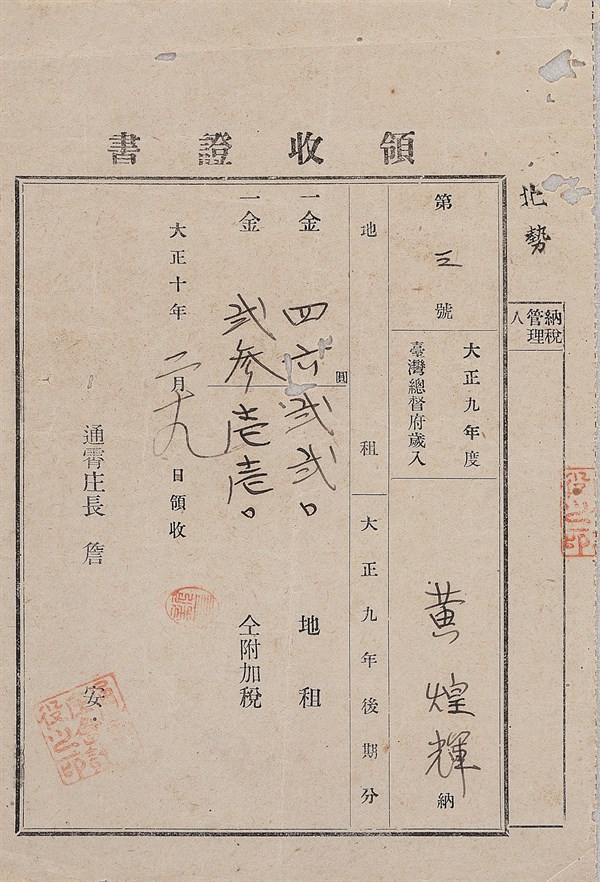 領收證書
北勢
納稅管理人
第三號
大正九年度
臺灣總督府歲入
黃煌輝 納
地租
大正九年後期分
一金 四六弐弐。 地租
圓
一金 弐参壱壱。 仝附加稅
大正十年二月十九日領收
通霄庄長 詹 安
役之印
役之印